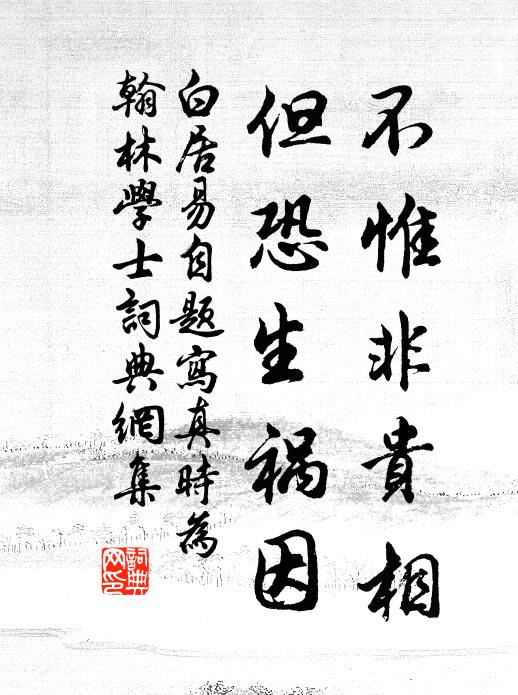 不惟非貴相
但恐生禍因
白居易自題寫真時為
翰林學士詞典網集
詞典网印